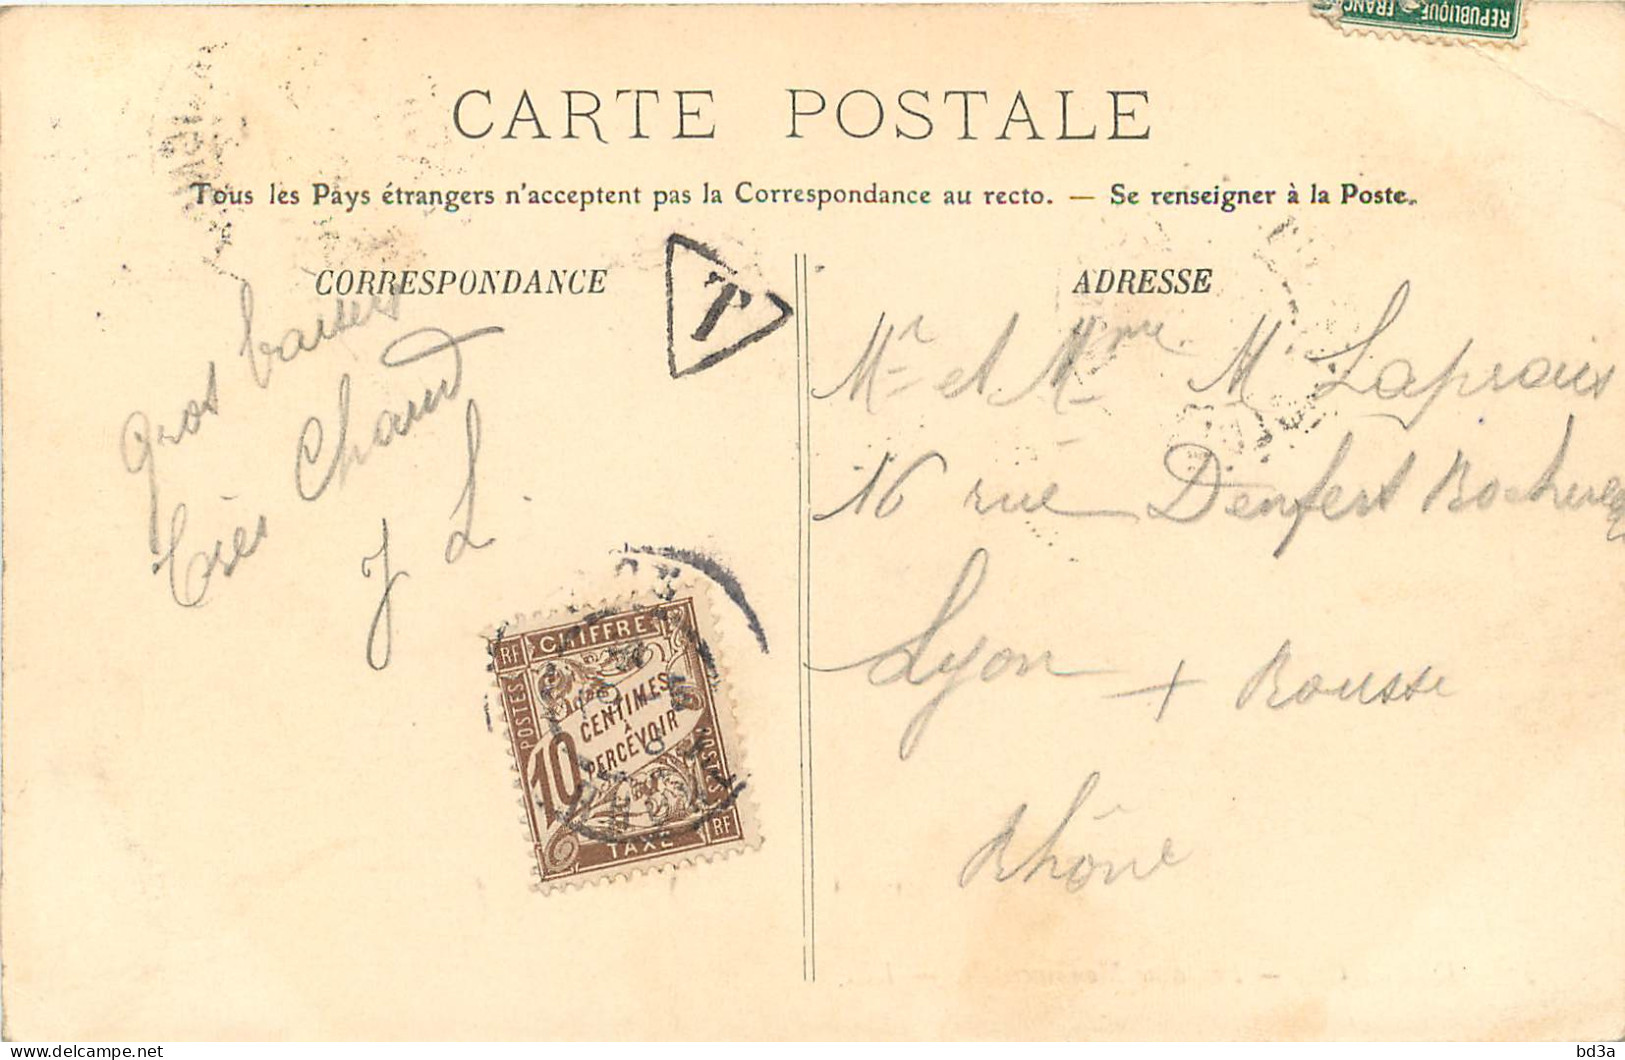 REPUBLIQUE FRANC
CARTE POSTALE
Tous les Pays étrangers n'acceptent pas la Correspondance au recto. — Se renseigner à la Poste.
CORRESPONDANCE
T
Gros baisers
très Chaud
J L.
RF CHIFFRE
POSTES
10 CENTIMES
À
PERCEVOIR
POSTES
TAXE RF
ADRESSE
Mr et Mme M. Laprais
16 rue Denfert Rochereau
Lyon + Rousse
Rhône
bd3a